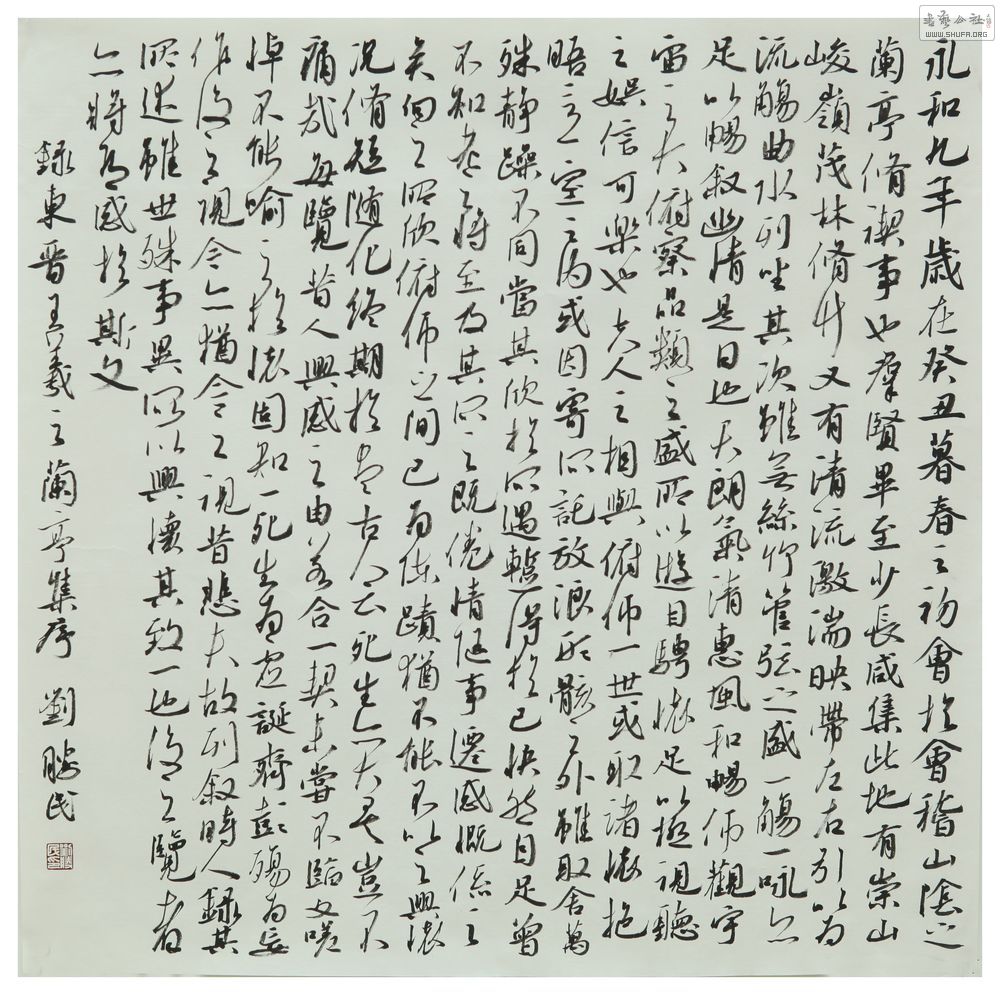 永和九年歲在癸丑暮春之初會於會稽山陰之
蘭亭脩禊事也羣賢畢至少長咸集此地有崇山
峻嶺茂林脩竹又有清流激湍映帶左右引以為
流觴曲水列坐其次雖無絲竹管弦之盛一觴一詠亦
足以暢敘幽情是日也天朗氣清惠風和暢仰觀宇
宙之大俯察品類之盛所以遊目騁懷足以極視聽
之娛信可樂也夫人之相與俯仰一世或取諸懷抱
晤言一室之內或因寄所託放浪形骸之外雖取舍萬
殊靜躁不同當其欣於所遇暫得於己快然自足曾
不知老之將至及其所之既倦情隨事遷感慨係之
矣向之所欣俯仰之間已為陳蹟猶不能不以之興懷
況脩短隨化終期於盡古人云死生亦大矣豈不
痛哉每覽昔人興感之由若合一契未嘗不臨文嗟
悼不能喻之於懷固知一死生為虛誕齊彭殤為妄
作後之視今亦猶今之視昔悲夫故列敘時人錄其
所述雖世殊事異所以興懷其致一也後之覽者
亦將有感於斯文
錄東晉王羲之蘭亭集序 劉勝民
書藝公社
WWW.SHUFA.ORG